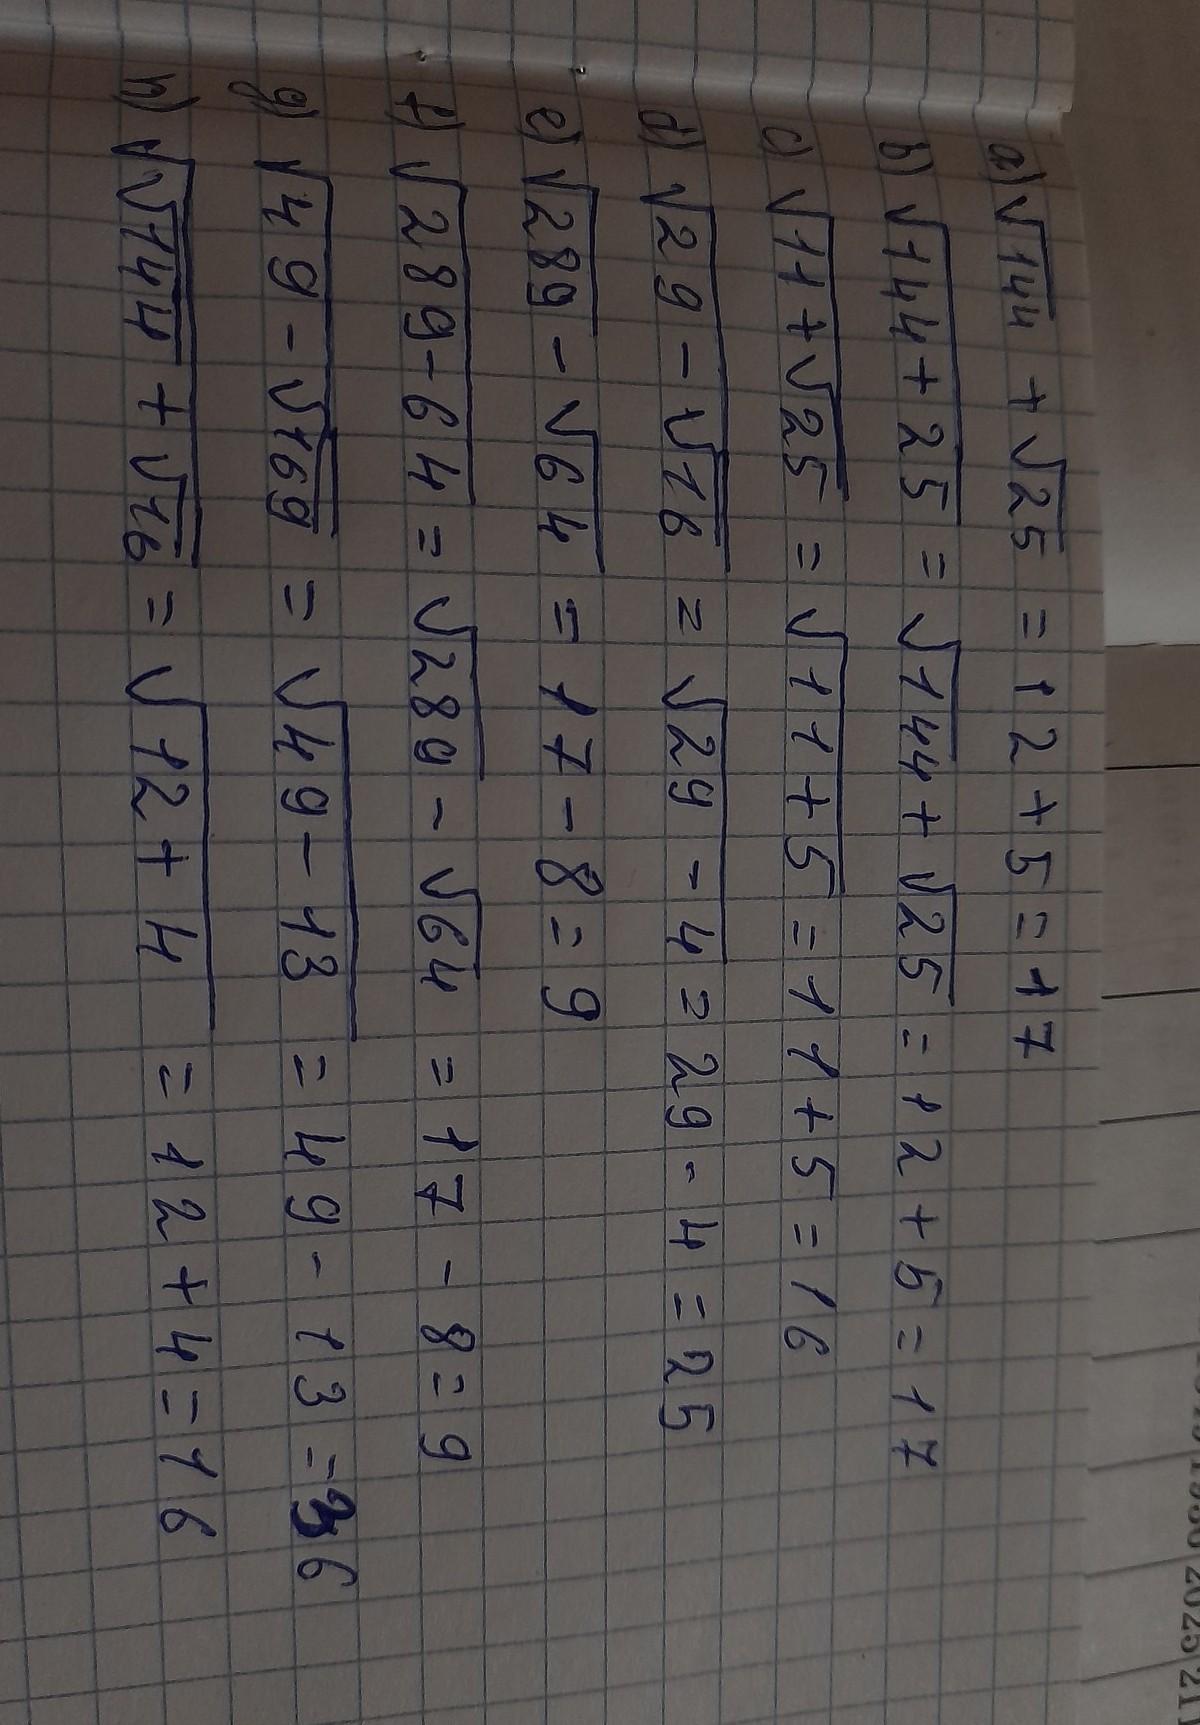 a) √144 + √25 = 12 + 5 = 17
b) √(144 + 25) = √144 + √25 = 12 + 5 = 17
c) √(11 + √25) = √(11 + 5) = 11 + 5 = 16
d) √(29 - √16) = √(29 - 4) = 29 - 4 = 25
e) √289 - √64 = 17 - 8 = 9
f) √(289 - 64) = √289 - √64 = 17 - 8 = 9
g) √(49 - √169) = √(49 - 13) = 49 - 13 = 36
h) √(√144 + √16) = √(12 + 4) = 12 + 4 = 16